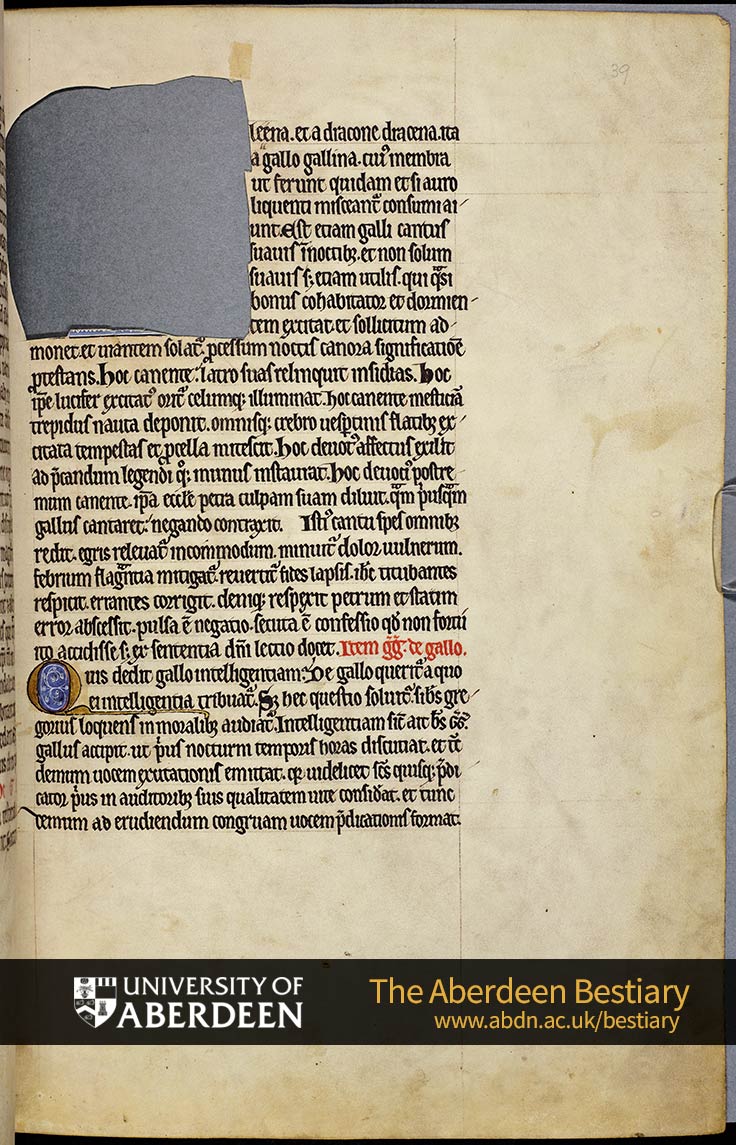 39
leena. et a dracone dracena. ita
a gallo gallina. cui᾽ membra
ut ferunt quidam et si auro
liquenti misceant᾽ consumi ai
unt. Est etiam galli cantus
suauis ī noctibꝫ. et non solum
suauis sꝫ etiam utilis. qui q̄si
bonus cohabitator et dormien
tem excitat. et sollicitum ad
monet. et uiantem solat᾽. ꝓcessum noctis canora significatiōe
ꝓtestans. Hoc canente. latro suas relinquit insidias. Hoc
ip̄e lucifer excitat᾽ orit᾽ celumqꝫ illuminat. hoc canente mesticiā
trepidus nauta deponit. omnisqꝫ crebro uesꝑtinis flatibꝫ ex
citata tempestas et ꝓcella mitescit. Hoc deuot᾽ affectus exilit
ad p̄candum legendi qͦꝫ munus instaurat. Hoc postre
mum canente. ip̄a eccl̄e petra culpam suam diluit. q̄m p᾽usq̄m
gallus cantaret. negando contraxit. Isti᾽ cantu spes omnibꝫ
redit. egris releuat᾽ incommodum. minuit᾽ dolor uulnerum.
febrium flag̃ntia mitigat᾽. reuertit᾽ fides lapsis. ih̄c titubantes
respicit. errantes corrigit. deniqꝫ respexit petrum et statim
error abscessit. pulsa ē negatio. secuta ē confessio qd̄ non fortu
ito accidisse sꝫ ex sententia dn̄i lectio docet. Item gg̃. de gallo.
Quis dedit gallo intelligentiam. De gallo querit᾽ a quo
ei intelligentia tribuat᾽. Sꝫ hec questio soluit᾽. si bs̄ gre
gorius loquens in moralibꝫ audiat᾽. Intelligentiam sic̄ ait bs̄ GG᾽.
gallus accipit. ut p᾽us nocturni temporis horas discutiat. et tc̄
demum uocem excitationis emittat. qꝛ uidelicet sc̄s quisqꝫ p̄di
cator p᾽us in auditoribꝫ suis qualitatem uite consid᾽at. et tunc
demum ad erudiendum congruam uocem p̄dicationis format.
UNIVERSITY OF
ABERDEEN
The Aberdeen Bestiary
www.abdn.ac.uk/bestiary